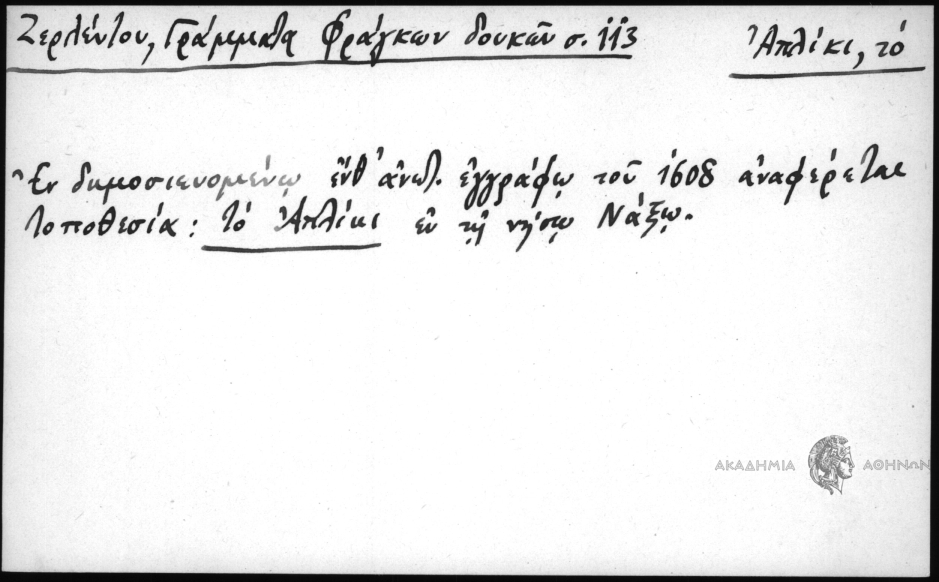 Ζερλέντου, Γράμματα Φράγκων δουκῶν σ. 113
Ἀπλίκι, τό
Ἐν δημοσιευομένῳ ἔνθ' ἀνωτ. ἐγγράφῳ τοῦ 1608 ἀναφέρεται
τοποθεσία: τό Ἀπλίκι ἐν τῇ νήσῳ Νάξῳ.
ΑΚΑΔΗΜΙΑ ΑΘΗΝΩΝ